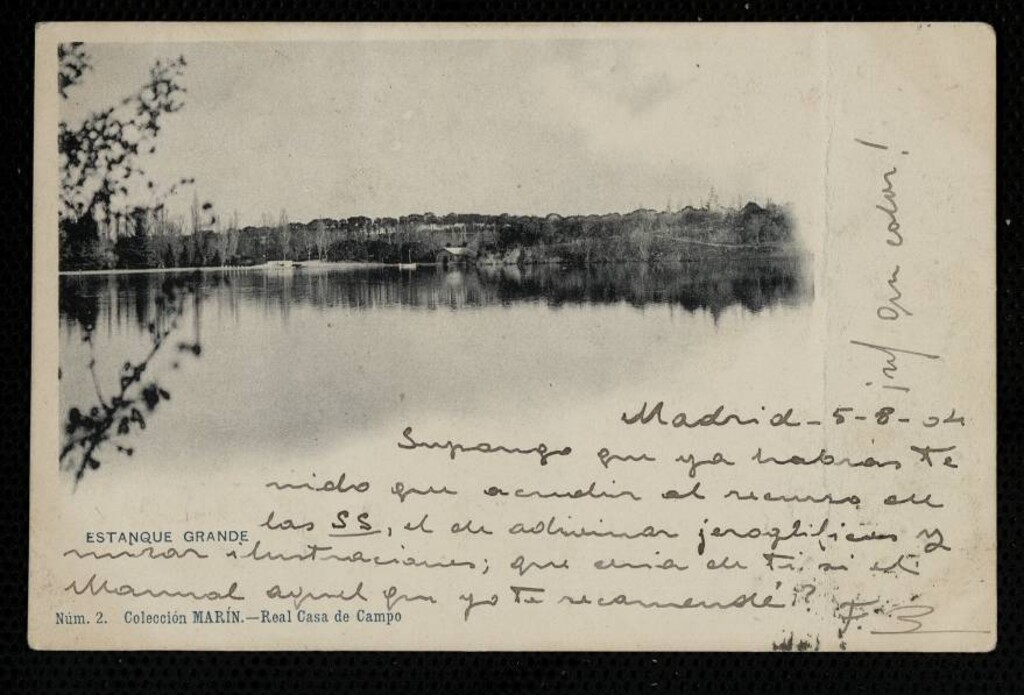 ¡uf que calor!
Madrid - 5-8-04
Supongo que ya habrás te
nido que acudir al recurso de
las SS, el de adivinar jeroglificos y
mirar ilustraciones; que de ti si el
Manual aquel que yo te recomendé?
F. B
ESTANQUE GRANDE
Núm. 2. Colección MARÍN.—Real Casa de Campo